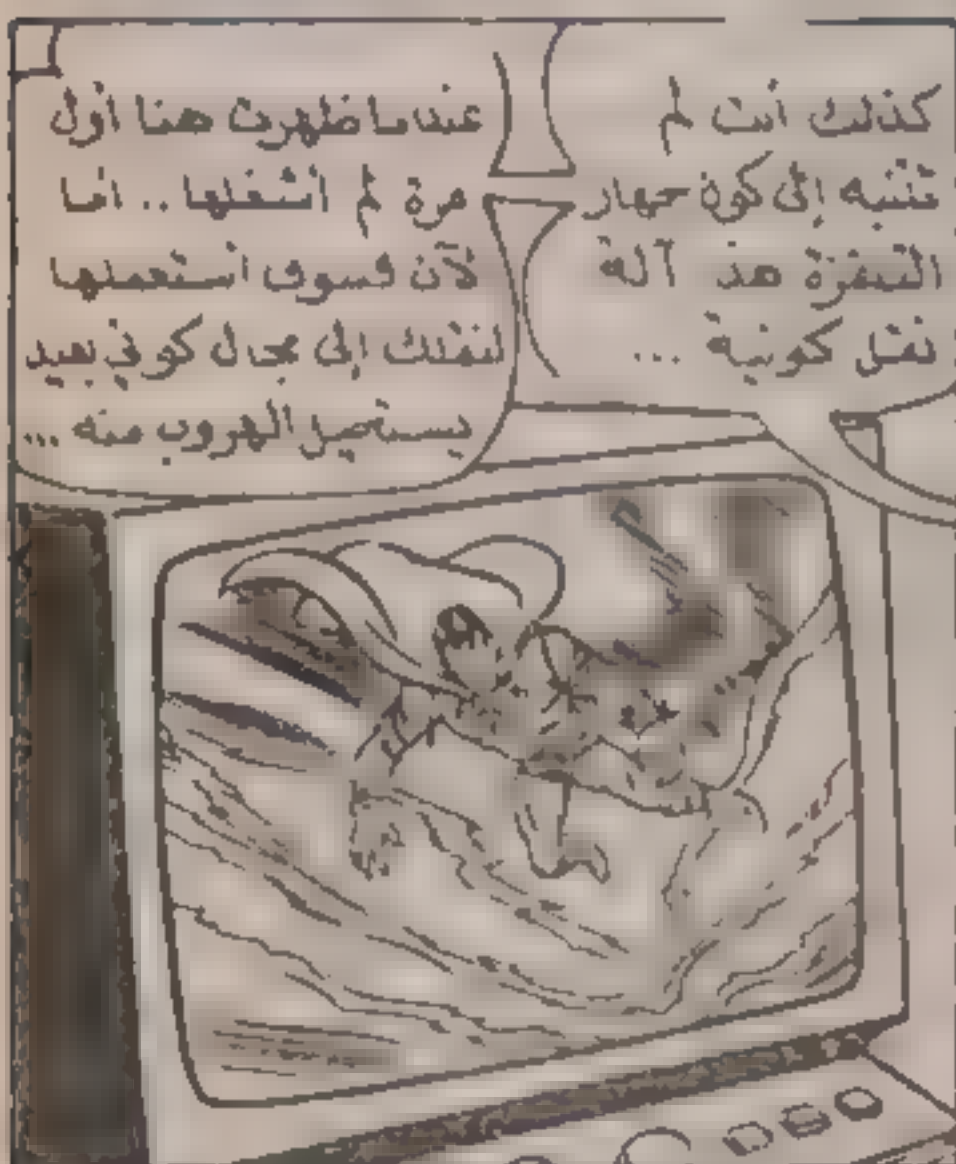 كذلك أنت لم
تنتبه إلى كون جهاز
التلفزة هذا آلة
نقل كونية ...
عندما ظهرت هنا أول
مرة لم أشغلها .. أما
الآن فسوف أستعملها
لنقلك إلى مجال كوني بعيد
يستحيل الهروب منه ...